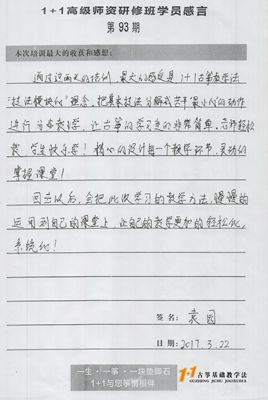 1+1高级师资研修班学员感言
第93期
本次培训最大的收获和感想：
通过这两天的培训，最大的感受是1+1古筝教学法
"技法模块化"理念，把基本技法分解成若干最小化的动作
进行分步教学，让古筝的学习变的非常简单，老师轻松
教，学生快乐学！精心的设计每一个教学环节，灵动的
掌握课堂！
回去以后，会把此次学习的教学方法，慢慢的
运用到自己的课堂上，让自己的教学更加的轻松化，
系统化！
签名：袁园
日期：2017.3.22
一生·一筝·一块垫脚石
1+1与您筝情相伴
1+1古筝基础教学法
GUZHENG JICHU JIAOXUEFA